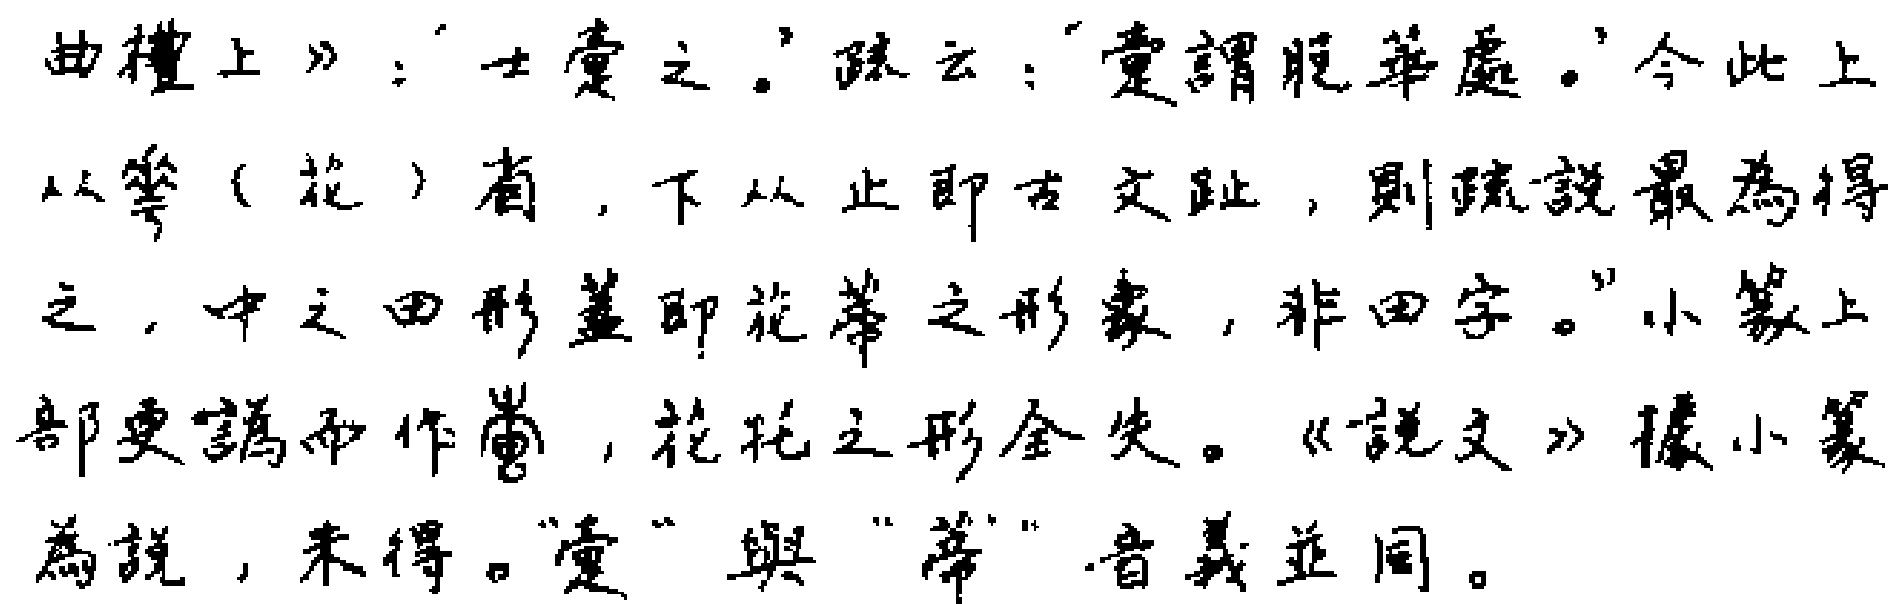 曲禮上》：‘士疐之。’疏云：‘疐謂脫華處。’今此上
从𠌶（花）省，下从止即古文趾，則疏說最為得
之，中之田形蓋即花蒂之形象，非田字。”小篆上
部更譌而作，花托之形全失。《說文》據小篆
為說，未得。“疐”與“蒂”音義並同。